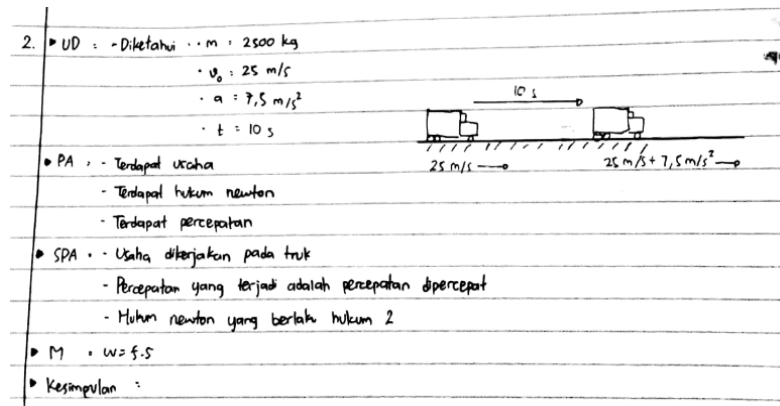 2. ▸ UD : - Diketahui : • m : 2500 kg
• v₀ : 25 m/s
• a : 7,5 m/s²
• t : 10 s
10 s
25 m/s
25 m/s + 7,5 m/s²
▸ PA : - Terdapat usaha
- Terdapat hukum newton
- Terdapat percepatan
▸ SPA : - Usaha dikerjakan pada truk
- Percepatan yang terjadi adalah percepatan dipercepat
- Hukum newton yang berlaku hukum 2
▸ M : W = f.s
▸ Kesimpulan :